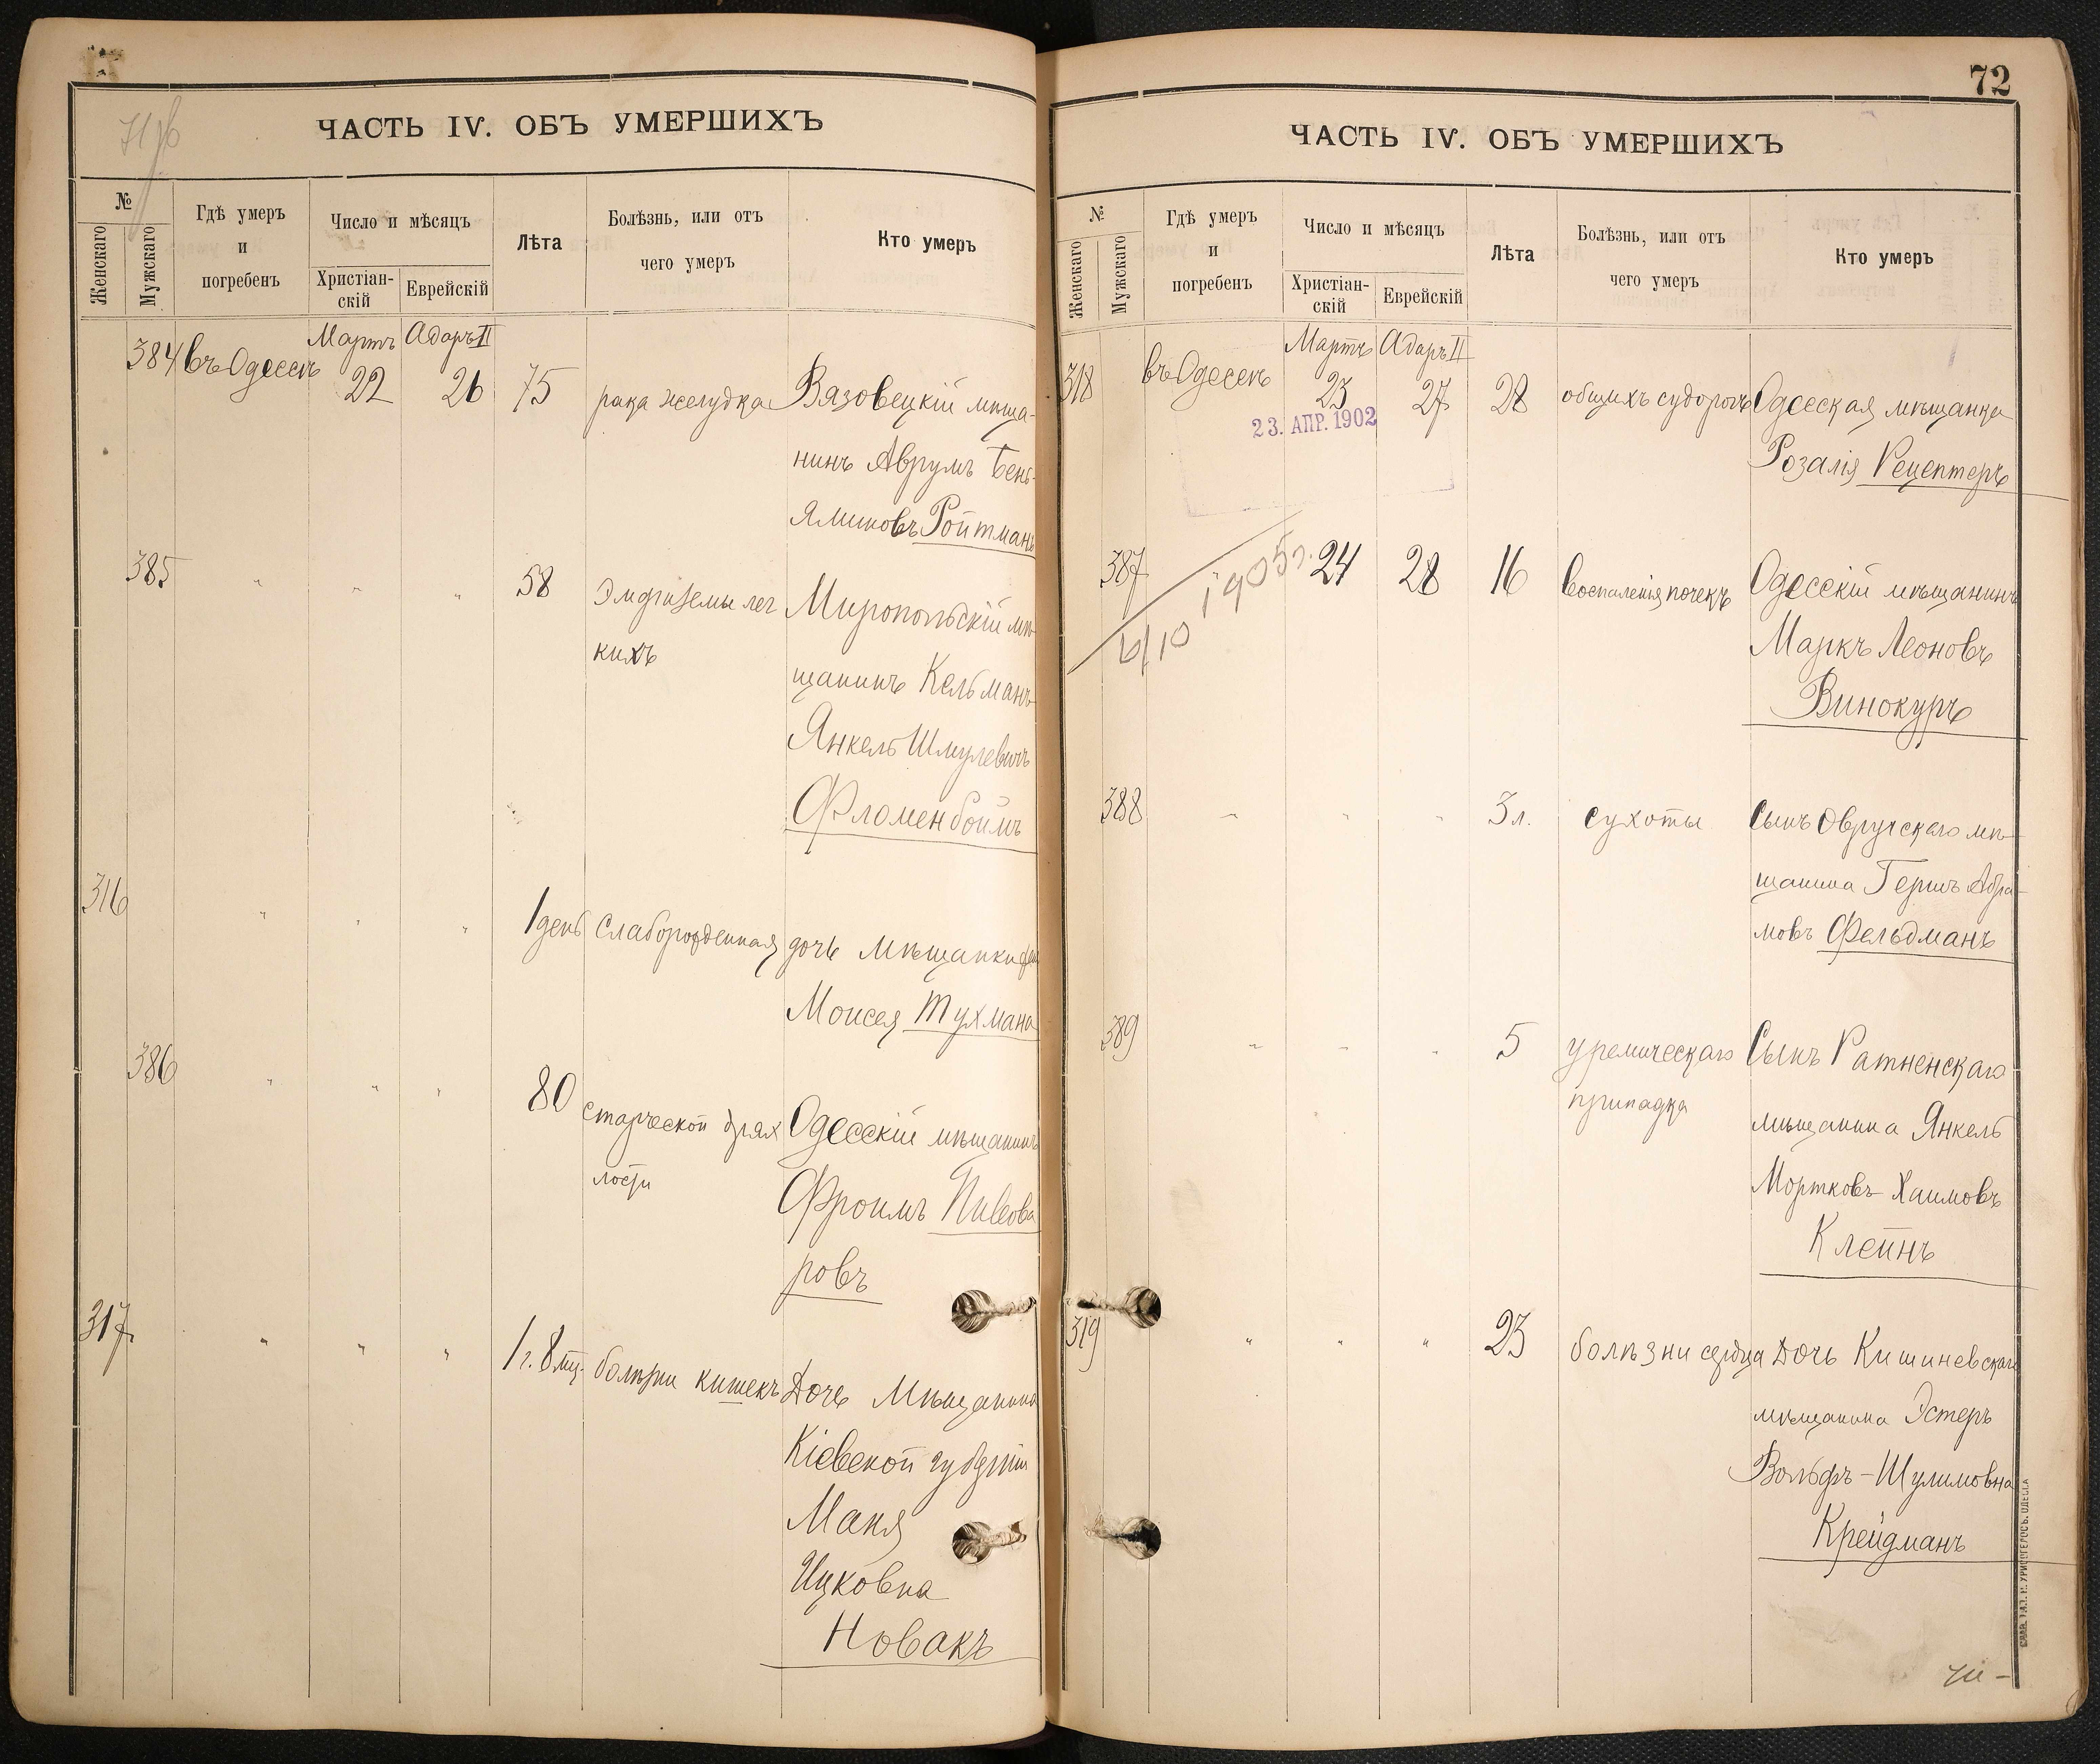 71 об
ЧАСТЬ IV. ОБЪ УМЕРШИХЪ
№
Женскаго
Мужскаго
Гдѣ умеръ
и
погребенъ
Число и мѣсяцъ
Христіан-
скій
Еврейскій
Лѣта
Болѣзнь, или отъ
чего умеръ
Кто умеръ
Мартъ Адаръ II
384 въ Одессѣ 22 26 75 рака желудка Вязовецкій мѣща-
нинъ Аврумъ Бень-
яминовъ Ройтманъ
385 " " " 58 Эмфиземы лег Миропольскій мѣ-
кихъ
щанинъ Кельманъ-
Янкель Шмулевичъ
Фломенбоймъ
316 " " " 1 день Слаборожденная дочь мѣщанки
Моисея Тухмана
386 " " " 80 старческой дрях Одесскій мѣщанинъ
лости
Фроимъ Пивова
ровъ
317 " " " 1 г. 8 мц. болѣзни кишекъ Дочь Мѣщанина
Кіевской губерніи
Маня
Ицковна
Новакъ
72
ЧАСТЬ IV. ОБЪ УМЕРШИХЪ
№
Женскаго
Мужскаго
Гдѣ умеръ
и
погребенъ
Число и мѣсяцъ
Христіан-
скій
Еврейскій
Лѣта
Болѣзнь, или отъ
чего умеръ
Кто умеръ
Мартъ Адаръ II
318 въ Одессѣ 23 27 28 общихъ судорогъ Одесская мѣщанка
23. АПР. 1902
Розалія Рецептеръ
387 24 28 16 воспаленія почекъ Одесскій мѣщанинъ
6/10 1905 г.
Маркъ Леоновъ
Винокуръ
388 " " " 3 л. сухоты Сынъ Овручскаго мѣ-
щанина Гершъ Абра-
мовъ Фельдманъ
389 " " " 5 уремическаго Сынъ Ратненскаго
припадка
мѣщанина Янкель
Мортковъ-Хаимовъ
Клейнъ
319 " " " 23 болѣзни сердца Дочь Кишиневскаго
мѣщанина Эстеръ
Вольфъ-Шулимовна
Крейдманъ
СЛАВ. ТИП. Н. ХРИСОГЕЛОСЪ. ОДЕССА